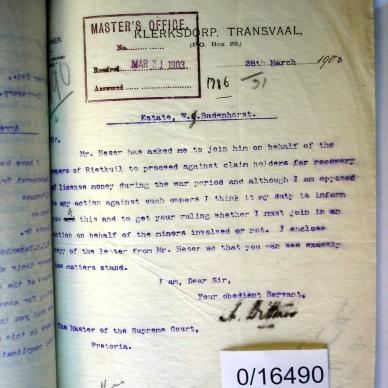 MASTER'S OFFICE
No.
Received MAR 31 1903
Answered
KLERKSDORP, TRANSVAAL,
(P.O. Box 55.)
28th March 1903
1786
31
Estate, W. J. Badenhorst.
Mr. Neser has asked me to join him on behalf of the
owners of Rietkuil to proceed against claim holders for recovery
of license money during the war period and although I am opposed
to any action against such owners I think it my duty to inform
this and to get your ruling whether I must join in an
action on behalf of the minors involved or not. I enclose
copy of the letter from Mr. Neser so that you can see exactly
how matters stand.
I am, Dear Sir,
Your obedient Servant,
The Master of the Supreme Court,
Pretoria.
0/16490